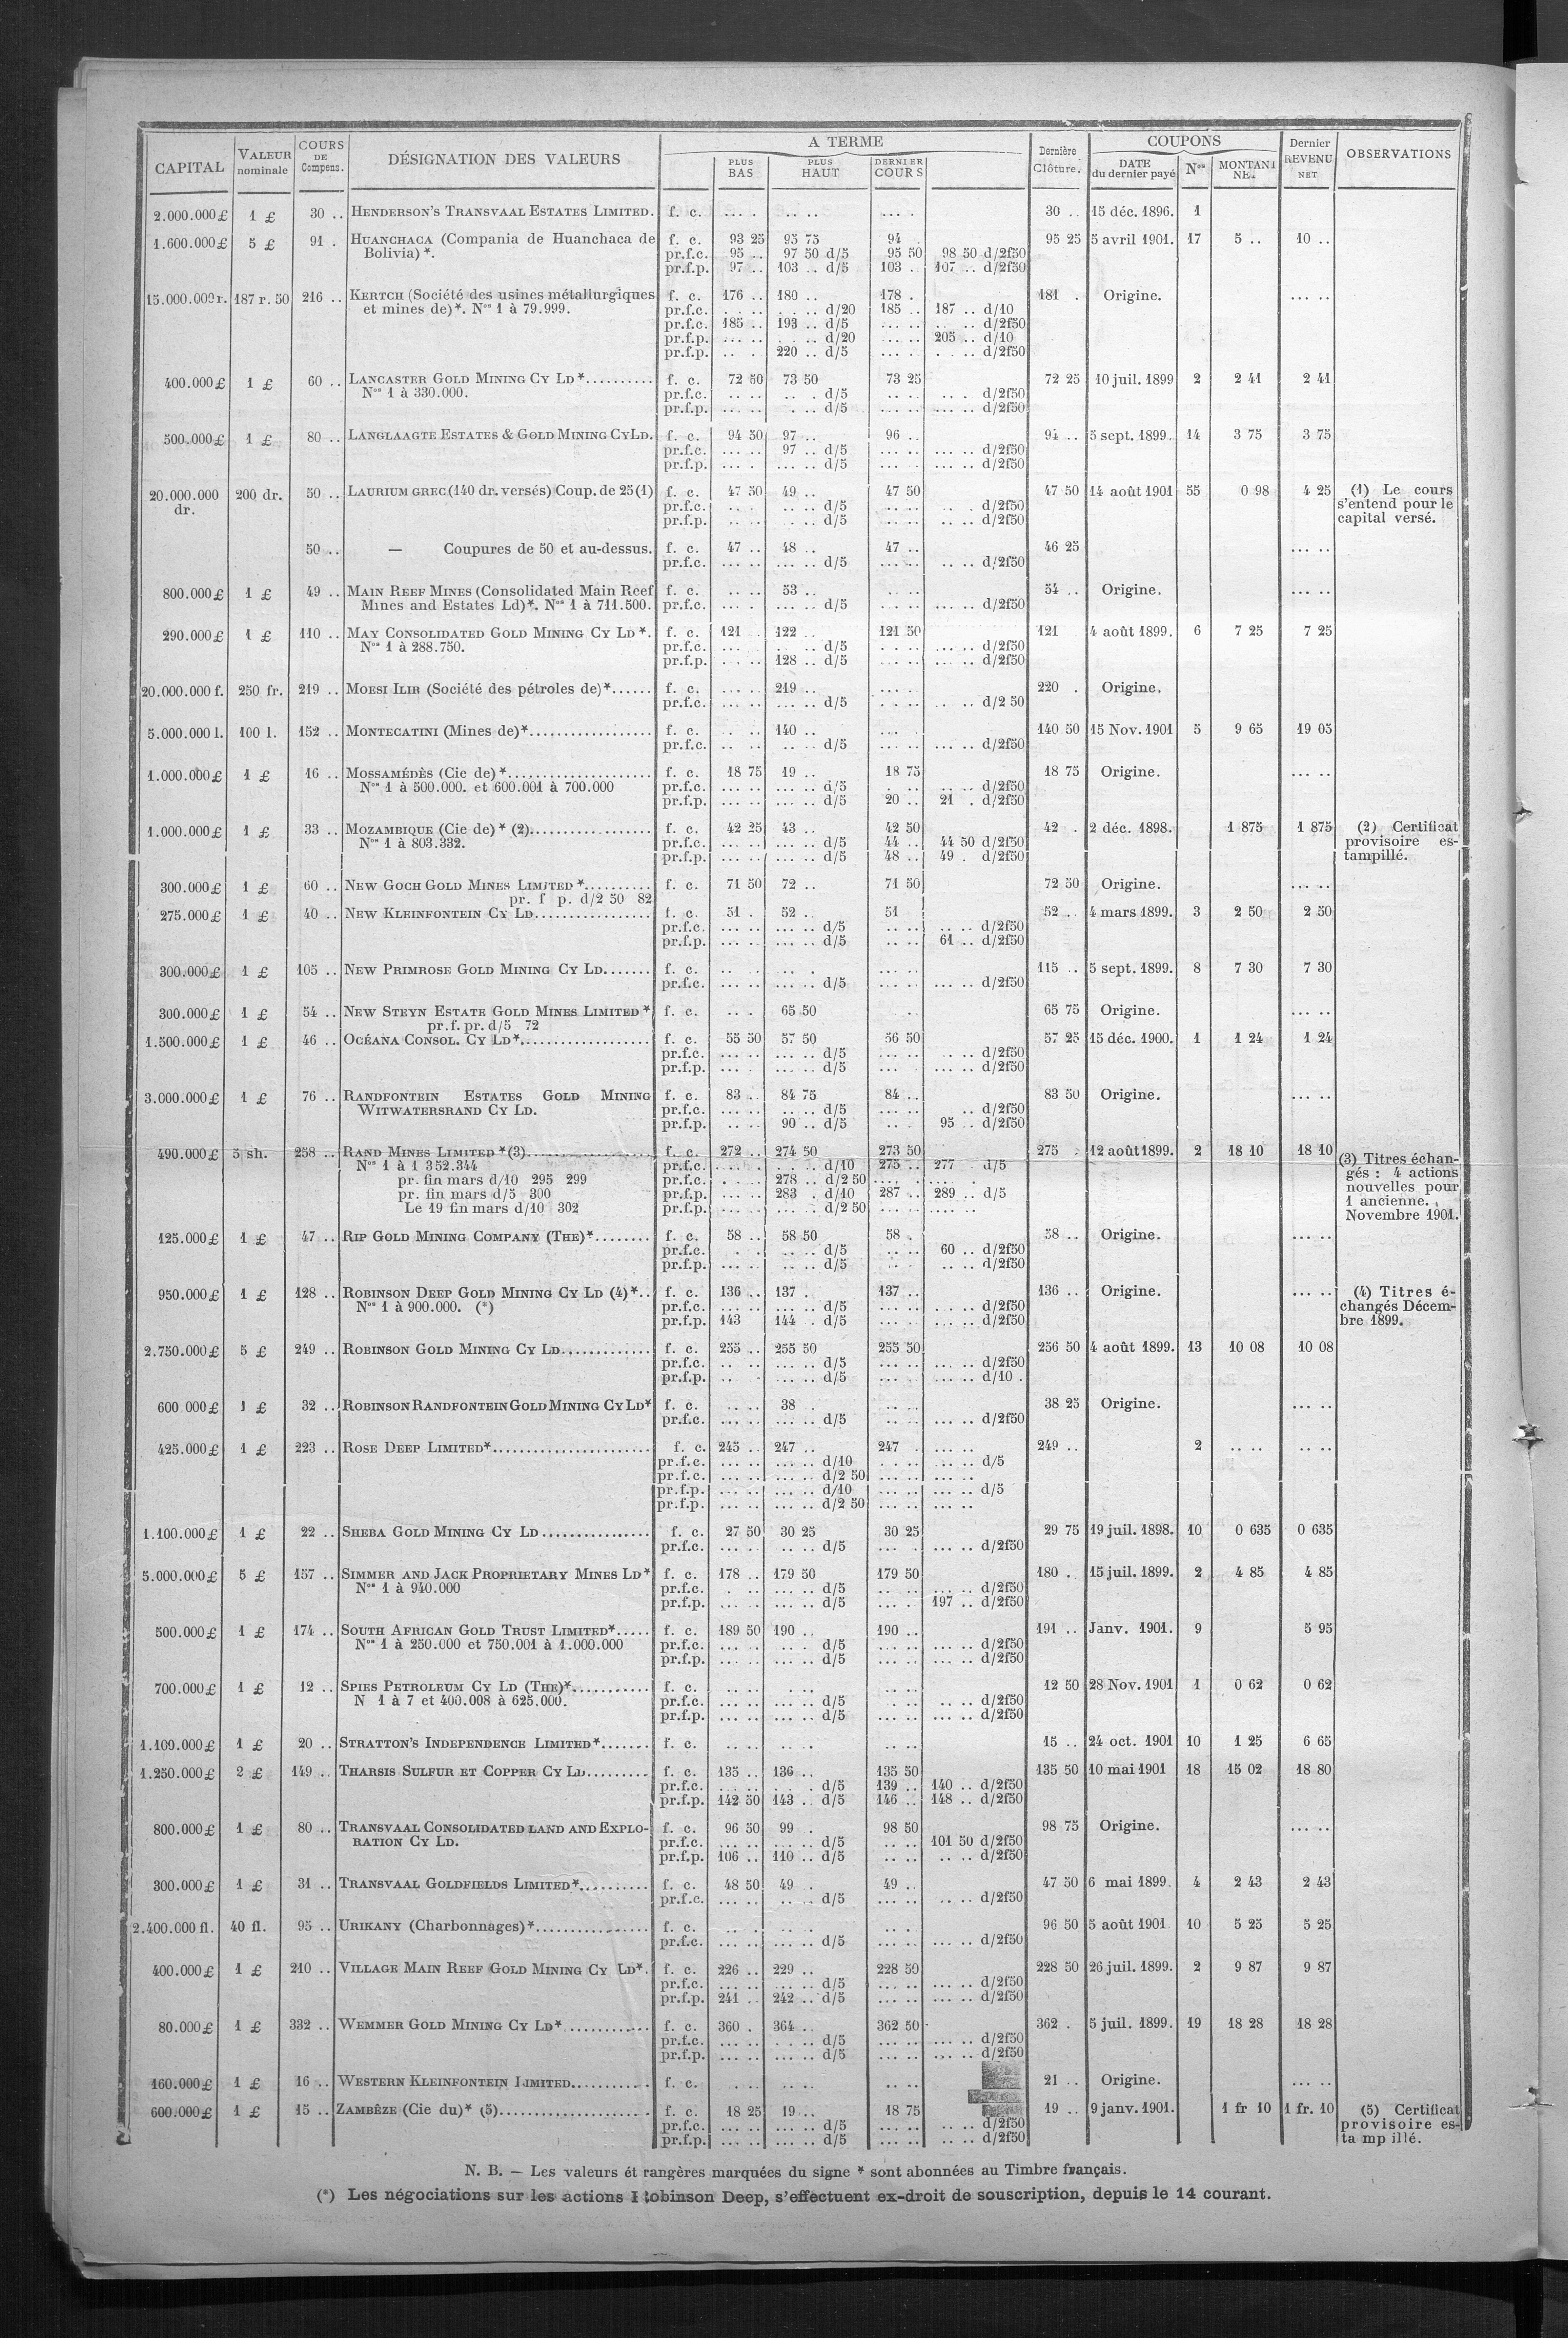 CAPITAL VALEUR nominale COURS DE Compens. DÉSIGNATION DES VALEURS A TERME PLUS BAS PLUS HAUT DERNIER COURS Dernière Clôture. COUPONS DATE du dernier payé Nos MONTANT NET Dernier REVENU NET OBSERVATIONS
2.000.000£ 1 £ 30 .. HENDERSON'S TRANSVAAL ESTATES LIMITED. f. c. ... . .. .. ... . 30 .. 15 déc. 1896. 1
1.600.000£ 5 £ 91 . HUANCHACA (Compania de Huanchaca de f. c. 93 25 95 75 94 . 95 25 5 avril 1901. 17 5 .. 10 ..
Bolivia) *. pr.f.c. 95 .. 97 50 d/5 95 50 98 50 d/2f50
pr.f.p. 97 .. 103 .. d/5 103 . 107 .. d/2f50
15.000.000r. 187 r. 50 216 .. KERTCH (Société des usines métallurgiques f. c. 176 .. 180 .. 178 . 181 . Origine. ... ..
et mines de)*. Nos 1 à 79.999. pr.f.c. . .. . .. d/20 185 .. 187 .. d/10
pr.f.c. 185 .. 193 .. d/5 ... .. .. d/2f50
pr.f.p. ... .. . .. d/20 ... .. 205 .. d/10
pr.f.p. .. . 220 .. d/5 ... . . .. d/2f50
400.000£ 1 £ 60 .. LANCASTER GOLD MINING CY LD*.......... f. c. 72 50 73 50 73 25 72 25 10 juil. 1899 2 2 41 2 41
Nos 1 à 330.000. pr.f.c. .. .. .. . d/5 .. .. .. . d/2f50
pr.f.p. ... .. . .. d/5 ... .. ... .. d/2f50
500.000£ 1 £ 80 .. LANGLAAGTE ESTATES & GOLD MINING CY LD. f. c. 94 50 97 .. 96 .. 94 .. 5 sept. 1899. 14 3 75 3 75
pr.f.c. ... .. 97 .. d/5 ... .. ... .. d/2f50
pr.f.p. ... . ... .. d/5 ... .. ... .. d/2f50
20.000.000 200 dr. 50 .. LAURIUM GREC (140 dr. versés) Coup. de 25 (1) f. c. 47 50 49 .. 47 50 47 50 14 août 1901 55 0 98 4 25 (1) Le cours
dr. pr.f.c. .. .. .. d/5 .. .. .. . d/2f50 s'entend pour le
pr.f.p. ... .. . .. d/5 ... .. .. .. d/2f50 capital versé.
50 .. — Coupures de 50 et au-dessus. f. c. 47 .. 48 .. 47 .. 46 25 ... ..
pr.f.c. ... .. ... .. d/5 ... .. .. .. d/2f50
800.000£ 1 £ 49 .. MAIN REEF MINES (Consolidated Main Reef f. c. .. .. 53 .. .. .. 54 .. Origine. ... ..
Mines and Estates Ld)*. Nos 1 à 711.500. pr.f.c. ... . ... .. d/5 ... . ... .. d/2f50
290.000£ 1 £ 110 .. MAY CONSOLIDATED GOLD MINING CY LD *. f. c. 121 . 122 .. 121 50 121 4 août 1899. 6 7 25 7 25
Nos 1 à 288.750. pr.f.c. ... . .. d/5 .. .. ... .. d/2f50
pr.f.p. .. .. 128 .. d/5 ... .. ... .. d/2f50
20.000.000 f. 250 fr. 219 .. MOESI ILIR (Société des pétroles de)*...... f. c. ... .. 219 .. ... . 220 . Origine. ... ..
pr.f.c. ... .. ... .. d/5 .. .. .. .. d/2 50
5.000.000 l. 100 l. 152 .. MONTECATINI (Mines de)*................. f. c. .. .. 140 .. ... . 140 50 15 Nov. 1901 5 9 65 19 05
pr.f.c. .. .. .. .. d/5 ... .. ... .. d/2f50
1.000.000£ 1 £ 16 .. MOSSAMÉDÈS (Cie de)*.................... f. c. 18 75 19 .. 18 75 18 75 Origine. ... ..
Nos 1 à 500.000. et 600.001 à 700.000 pr.f.c. ... .. ... .. d/5 . .. .. .. d/2f50
pr.f.p. ... .. ... .. d/5 20 .. 21 . d/2f50
1.000.000£ 1 £ 33 .. MOZAMBIQUE (Cie de) * (2)................. f. c. 42 25 43 .. 42 50 42 . 2 déc. 1898. 1 875 1 875 (2) Certificat
Nos 1 à 803.332. pr.f.c. ... .. ... .. d/5 44 .. 44 50 d/2f50 provisoire es-
pr.f.p. ... .. ... .. d/5 48 .. 49 . d/2f50 tampillé.
300.000£ 1 £ 60 .. NEW GOCH GOLD MINES LIMITED *.......... f. c. 71 50 72 .. 71 50 72 50 Origine. ... ..
pr. f p. d/2 50 82
275.000£ 1 £ 40 .. NEW KLEINFONTEIN CY LD................. f. c. 51 . 52 . 51 52 .. 4 mars 1899. 3 2 50 2 50
pr.f.c. ... .. ... .. d/5 .. .. .. .. d/2f50
pr.f.p. ... .. ... .. d/5 .. .. 61 .. d/2f50
300.000£ 1 £ 105 .. NEW PRIMROSE GOLD MINING CY LD....... f. c. .. .. ... . ... .. 115 .. 5 sept. 1899. 8 7 30 7 30
pr.f.c. ... .. ... .. d/5 ... .. ... .. d/2f50
300.000£ 1 £ 54 .. NEW STEYN ESTATE GOLD MINES LIMITED * f. c. .. . 65 50 .. 65 75 Origine. ... ..
pr.f. pr. d/5 72
1.500.000£ 1 £ 46 .. OCÉANA CONSOL. CY LD*................... f. c. 55 50 57 50 56 50 57 25 15 déc. 1900. 1 1 24 1 24
pr.f.c. ... .. ... .. d/5 ... .. .. .. d/2f50
pr.f.p. ... . ... .. d/5 ... .. .. .. d/2f50
3.000.000£ 1 £ 76 .. RANDFONTEIN ESTATES GOLD MINING f. c. 83 .. 84 75 84 .. 83 50 Origine. ... ..
WITWATERSRAND CY LD. pr.f.c. ... .. .. .. d/5 ... .. .. d/2f50
pr.f.p. ... .. 90 .. d/5 ... .. 95 .. d/2f50
490.000£ 5 sh. 258 .. RAND MINES LIMITED *(3)................. f. c. 272 .. 274 50 273 50 275 . 12 août 1899. 2 18 10 18 10
Nos 1 à 1 352.344 pr.f.c. ... . . .. d/10 275 .. 277 . d/5 (3) Titres échan-
pr. fin mars d/10 295 299 pr.f.c. . .. 278 .. d/2 50 ... . ... . gés : 4 actions
pr. fin mars d/5 300 pr.f.p. ... .. 283 . d/10 287 .. 289 .. d/5 nouvelles pour
Le 19 fin mars d/10 302 pr.f.p. ... .. ... . d/2 50 ... .. .... .. 1 ancienne.
Novembre 1901.
125.000£ 1 £ 47 .. RIP GOLD MINING COMPANY (THE)*........ f. c. 58 .. 58 50 58 . 58 .. Origine. ... ..
pr.f.c. . . .. .. d/5 .. .. 60 .. d/2f50
pr.f.p. ... . ... .. d/5 .. . .. .. d/2f50
950.000£ 1 £ 128 .. ROBINSON DEEP GOLD MINING CY LD (4)*.. f. c. 136 .. 137 . 137 .. 136 .. Origine. ... .. (4) Titres é-
Nos 1 à 900.000. (*) pr.f.c. ... .. ... .. d/5 ... .. ... .. d/2f50 changés Décem-
pr.f.p. 143 144 . d/5 ... . ... .. d/2f50 bre 1899.
2.750.000£ 5 £ 249 .. ROBINSON GOLD MINING CY LD............. f. c. 255 .. 255 50 255 50 256 50 4 août 1899. 13 10 08 10 08
pr.f.c. .. .. ... .. d/5 ... .. ... .. d/2f50
pr.f.p. .. . ... .. d/5 ... . ... .. d/10 .
600 000£ 1 £ 32 .. ROBINSON RANDFONTEIN GOLD MINING CY LD* f. c. .. .. 38 . .. .. 38 25 Origine. ... ..
pr.f.c. ... .. ... .. d/5 .. .. ... .. d/2f50
425.000£ 1 £ 223 .. ROSE DEEP LIMITED*....................... f. c. 245 .. 247 .. 247 . ... .. 249 .. 2 .. .. .. ..
pr.f.c. ... .. ... .. d/10 . .. ... .. d/5
pr.f.c. ... .. ... .. d/2 50 ... .. ... ..
pr.f.p. ... .. ... .. d/10 ... .. ... .. d/5
pr.f.p. ... .. ... .. d/2 50 ... .. ... ..
1.100.000£ 1 £ 22 .. SHEBA GOLD MINING CY LD................ f. c. 27 50 30 25 30 25 29 75 19 juil. 1898. 10 0 635 0 635
pr.f.c. ... .. .. .. d/5 ... . ... .. d/2f50
5.000.000£ 5 £ 157 .. SIMMER AND JACK PROPRIETARY MINES LD* f. c. 178 .. 179 50 179 50 180 . 15 juil. 1899. 2 4 85 4 85
Nos 1 à 940.000 pr.f.c. . .. ... .. d/5 .. .. ... .. d/2f50
pr.f.p. ... .. ... .. d/5 ... . 197 .. d/2f50
500.000£ 1 £ 174 .. SOUTH AFRICAN GOLD TRUST LIMITED*..... f. c. 189 50 190 .. 190 .. 191 .. Janv. 1901. 9 5 95
Nos 1 à 250.000 et 750.001 à 1.000.000 pr.f.c. ... . .. . d/5 ... .. ... .. d/2f50
pr.f.p. ... .. ... .. d/5 ... .. ... .. d/2f50
700.000£ 1 £ 12 .. SPIES PETROLEUM CY LD (THE)*........... f. c. .. . .. .. .. . 12 50 28 Nov. 1901 1 0 62 0 62
N 1 à 7 et 400.008 à 625.000. pr.f.c. ... .. ... .. d/5 ... .. .. .. d/2f50
pr.f.p. ... .. ... .. d/5 ... .. ... .. d/2f50
1.100.000£ 1 £ 20 .. STRATTON'S INDEPENDENCE LIMITED*....... f. c. .. .. .. . .. .. 15 .. 24 oct. 1901 10 1 25 6 65
1.250.000£ 2 £ 149 .. THARSIS SULFUR ET COPPER CY LD......... f. c. 135 .. 136 .. 135 50 135 50 10 mai 1901 18 15 02 18 80
pr.f.c. .. .. . .. d/5 139 .. 140 .. d/2f50
pr.f.p. 142 50 143 .. d/5 146 .. 148 .. d/2f50
800.000£ 1 £ 80 .. TRANSVAAL CONSOLIDATED LAND AND EXPLO- f. c. 96 50 99 . 98 50 98 75 Origine. ... ..
RATION CY LD. pr.f.c. ... .. ... .. d/5 .. .. 101 50 d/2f50
pr.f.p. 106 .. 110 .. d/5 .. .. .. .. d/2f50
300.000£ 1 £ 31 .. TRANSVAAL GOLDFIELDS LIMITED*.......... f. c. 48 50 49 . 49 .. 47 50 6 mai 1899. 4 2 43 2 43
pr.f.c. ... .. .. .. d/5 ... .. .. .. d/2f50
2.400.000 fl. 40 fl. 95 .. URIKANY (Charbonnages)*................. f. c. .. . .. .. .. .. 96 50 5 août 1901. 10 5 25 5 25
pr.f.c. ... .. ... .. d/5 ... .. ... .. d/2f50
400.000£ 1 £ 210 .. VILLAGE MAIN REEF GOLD MINING CY LD*. f. c. 226 .. 229 .. 228 50 228 50 26 juil. 1899. 2 9 87 9 87
pr.f.c. ... .. ... .. d/5 ... .. ... .. d/2f50
pr.f.p. 241 .. 242 .. d/5 ... .. ... .. d/2f50
80.000£ 1 £ 332 .. WEMMER GOLD MINING CY LD*............. f. c. 360 . 364 .. 362 50 362 . 5 juil. 1899. 19 18 28 18 28
pr.f.c. ... .. ... .. d/5 ... .. ... .. d/2f50
pr.f.p. ... .. ... .. d/5 ... .. ... .. d/2f50
160.000£ 1 £ 16 .. WESTERN KLEINFONTEIN LIMITED........... f. c. . .. .. .. .. .. 21 .. Origine. ... ..
600.000£ 1 £ 15 .. ZAMBÈZE (Cie du)* (5)..................... f. c. 18 25 19 .. 18 75 19 .. 9 janv. 1901. 1 fr 10 1 fr. 10 (5) Certificat
pr.f.c. ... .. ... .. d/5 ... .. .. .. d/2f50 provisoire es-
pr.f.p. ... .. ... .. d/5 ... .. .. .. d/2f50 ta mp illé.
N. B. — Les valeurs ét rangères marquées du signe * sont abonnées au Timbre français.
(*) Les négociations sur les actions Robinson Deep, s'effectuent ex-droit de souscription, depuis le 14 courant.